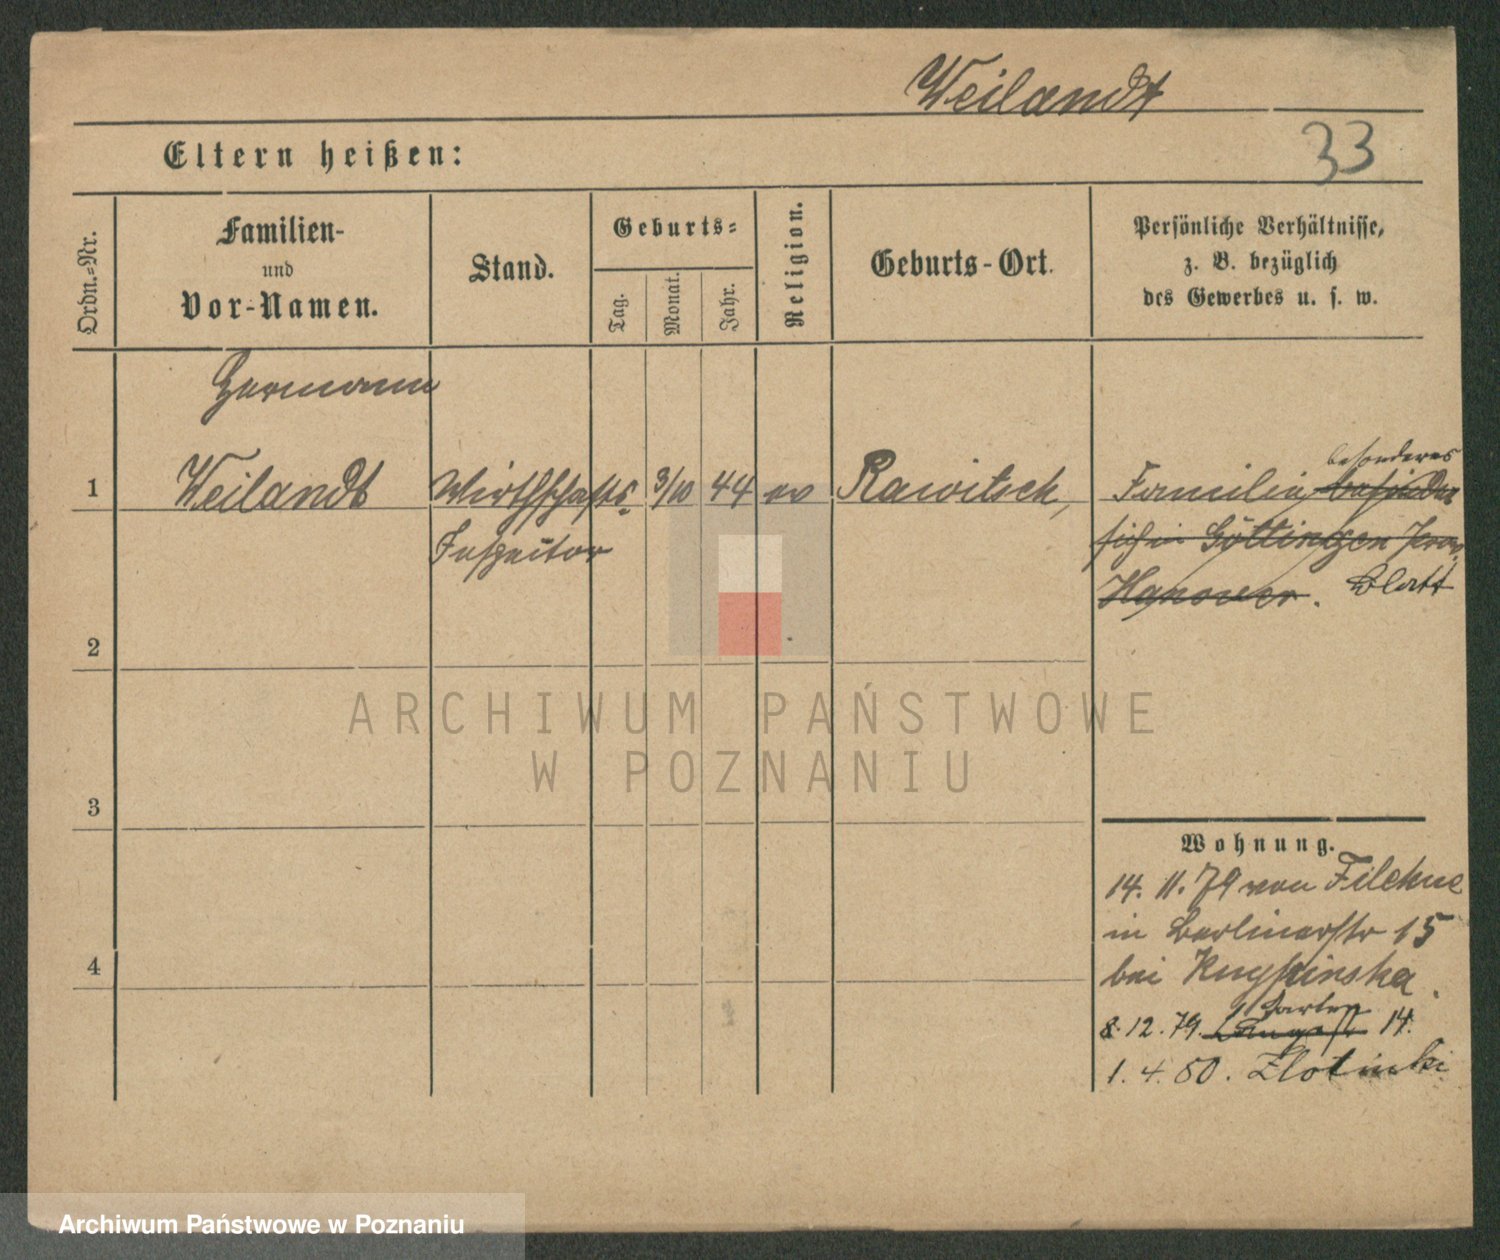 Weilandt
33
Eltern heißen:
Ordn.-Nr.
Familien-
und
Vor-Namen.
Stand.
Geburts-
Tag.
Monat.
Jahr.
Religion.
Geburts-Ort.
Persönliche Verhältnisse,
z. B. bezüglich
des Gewerbes u. s. w.
Hermann
1 Weilandt Wirthschafts- 3/10 44 ev Rawitsch, Familie befindet
besonderes
Inspector
sich in Göttingen Prov.
Hanover. Blatt
2
3
4
Wohnung.
14. 11. 79 von Filehne
in Berlinerstr 15
bei
Garten
8. 12. 79. Langest 14.
1. 4. 80. Zlotnik
ARCHIWUM PAŃSTWOWE
W POZNANIU
Archiwum Państwowe w Poznaniu